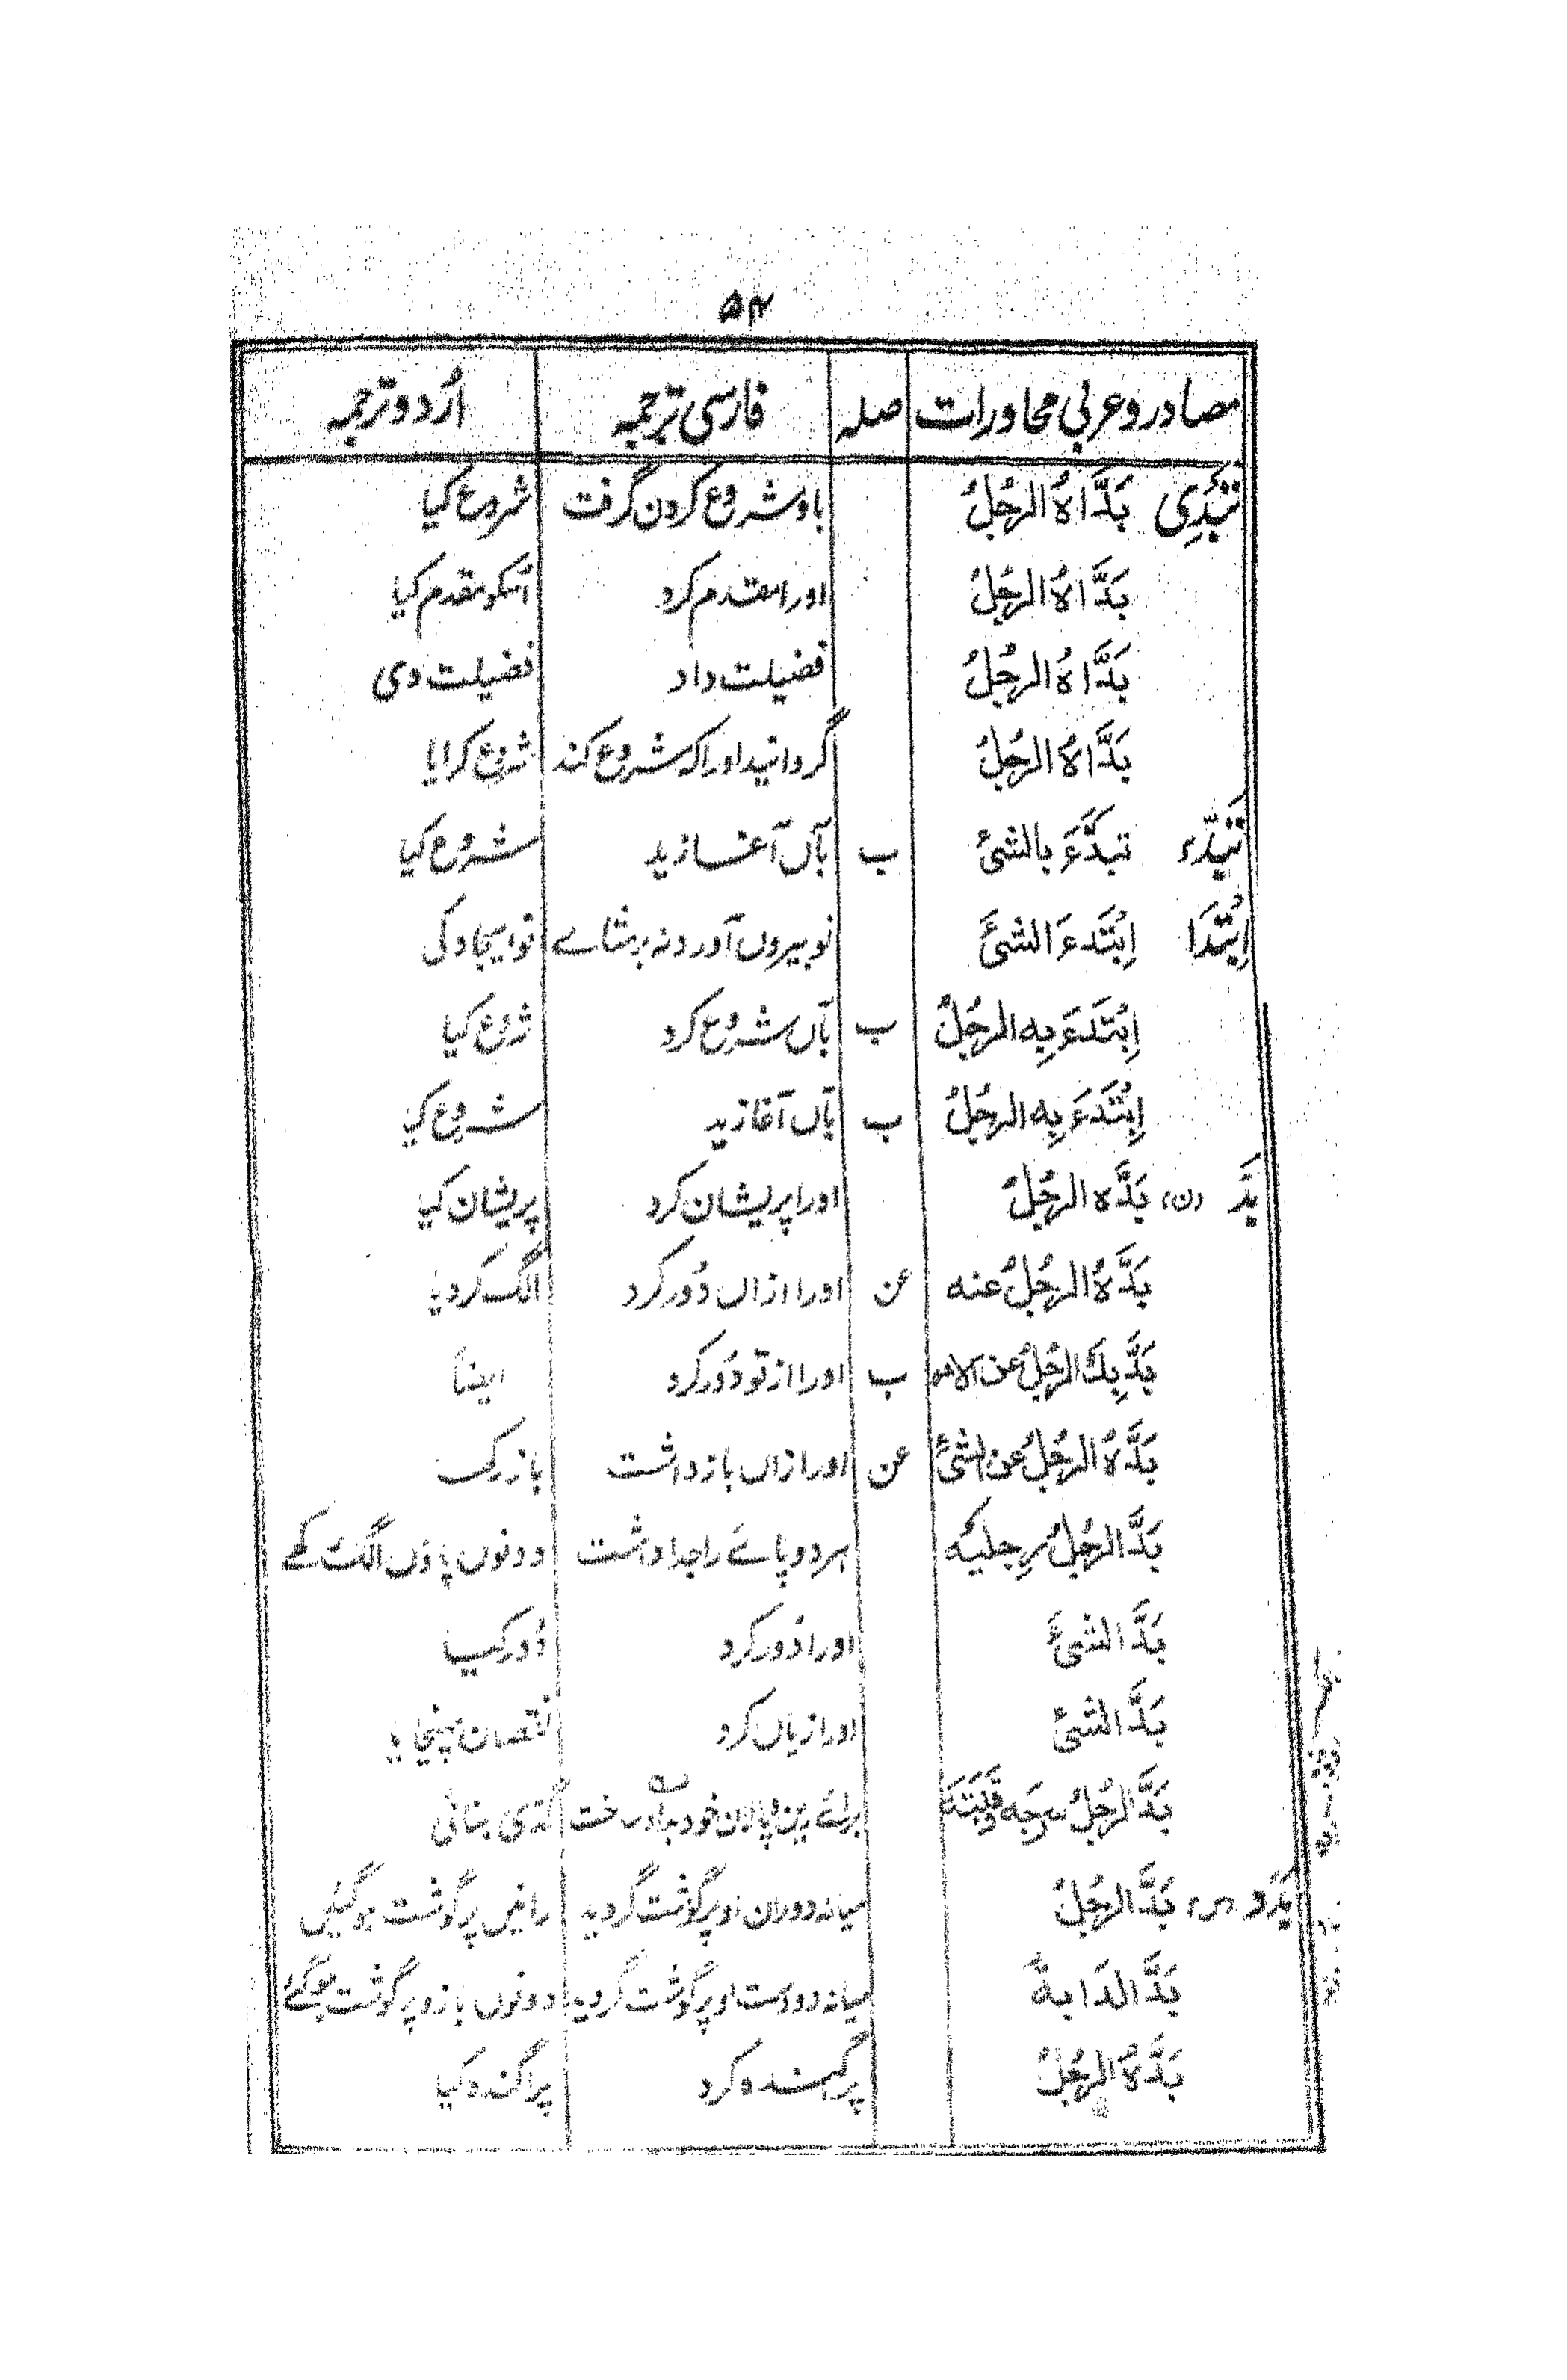 ۵۴
مصادر و عربی محاورات صلہ فارسی ترجمہ اُردو ترجمہ
تَبْدِی بَدَّاہُ الرجُلُ باو شروع کردن گرفت شروع کیا
بَدَّاہُ الرجُلُ اورا مقدم کرد اُسکو مقدم کیا
بَدَّاہُ الرجُلُ فضیلت داد فضیلت دی
بَدَّاہُ الرجُلُ گردانید اورا کہ شروع کند شروع کرایا
تَبَدُّء تبدَّءَ بالشیٔ ب بآں آغازید شروع کیا
اِبْتِدَا اِبْتَدءَ الشیَٔ نو بیروں آوردنہ برمثالے نو ایجاد کی
اِبْتَدَءَ بِہ الرجُلُ ب بآں شروع کرد شروع کیا
اِبْتَدَءَ بِہ الرجُلُ ب بآں آغازید شروع کیا
بَدّ (ن) بَدَّہ الرجُلُ اورا پریشان کرد پریشان کیا
بَدَّہُ الرجُلُ عنہ عن اورا ازاں دُور کرد الگ کردیا
بَدَّ بِكَ الرجُلُ عن الامر ب اورا از تو دُور کرد ایضاً
بَدَّہُ الرجُلُ عن الشیٔ عن اورا زاں بازداشت باز رکھا
بَدَّ الرجُلُ رِجلیہ ہر دو پائے را جدا داشت دونوں پاؤں الگ رکھے
بَدَّ الشیَٔ اورا دُور کرد دُور کیا
بَدَّ الشیٔ اورا زیاں کرد نقصان پہنچایا
بَدَّ الرجُلُ سرجَہ وقَتَبَہ برائے زین و پالان خود بداد ساخت گدّی بنائی
بَدَد (س) بَدَّ الرجُلُ میانہ دو ران او پر گوشت گردید رانیں پر گوشت ہوگئیں
بَدَّ الدَابةُ میانہ دو دست او پر گوشت گردید دونوں بازو پر گوشت ہوگئے
بَدَّہُ الرجُلُ پراگندہ کرد پراگندہ کیا